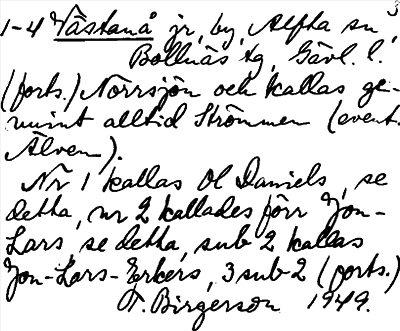 3
1-4 Västanå jr, by, Alfta sn,
Bollnäs tg, Gävl. l.
(forts.) Norrsjön och kallas ge-
mint alltid Strömmen (event.
Älven).
Nr 1 kallas Ol Daniels, se
detta, nr 2 kallades förr Jon-
Lars, se detta, sub 2 kallas
Jon-Lars-Erkers, 3 sub 2 (forts.)
F. Birgerson 1949.